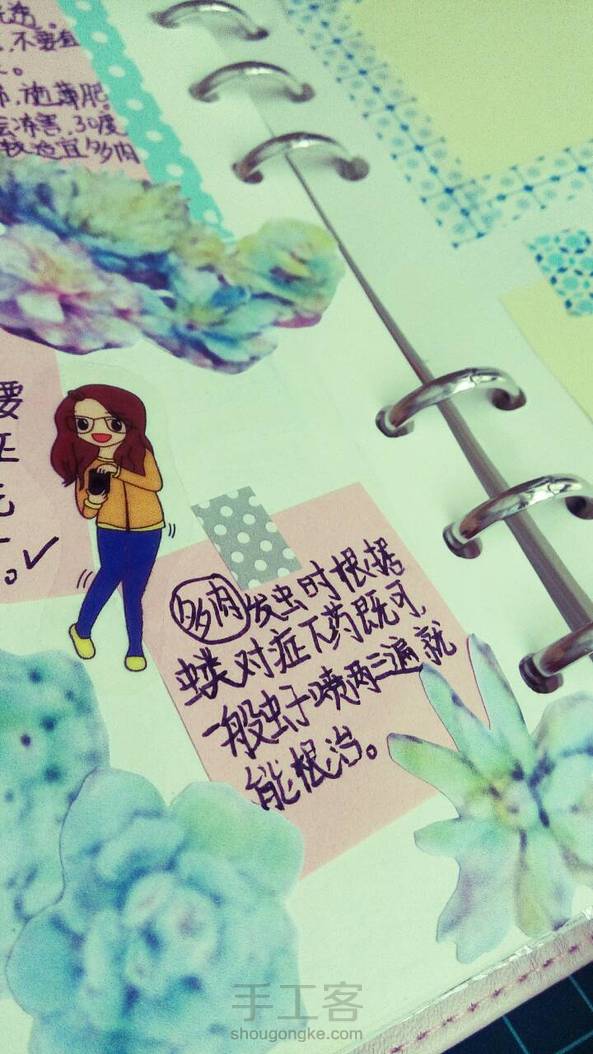 不要有
施薄肥,
冻害,30度
适宜多肉
要
正
多肉发虫时根据
虫类对症下药既可,
一般虫子喷两三遍就
能根治。
手工客
shougongke.com